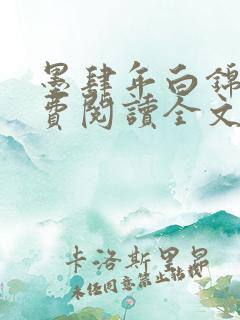 墨肆年白錦
費閱讀全文
卡洛斯里昂
未经同意禁止转载